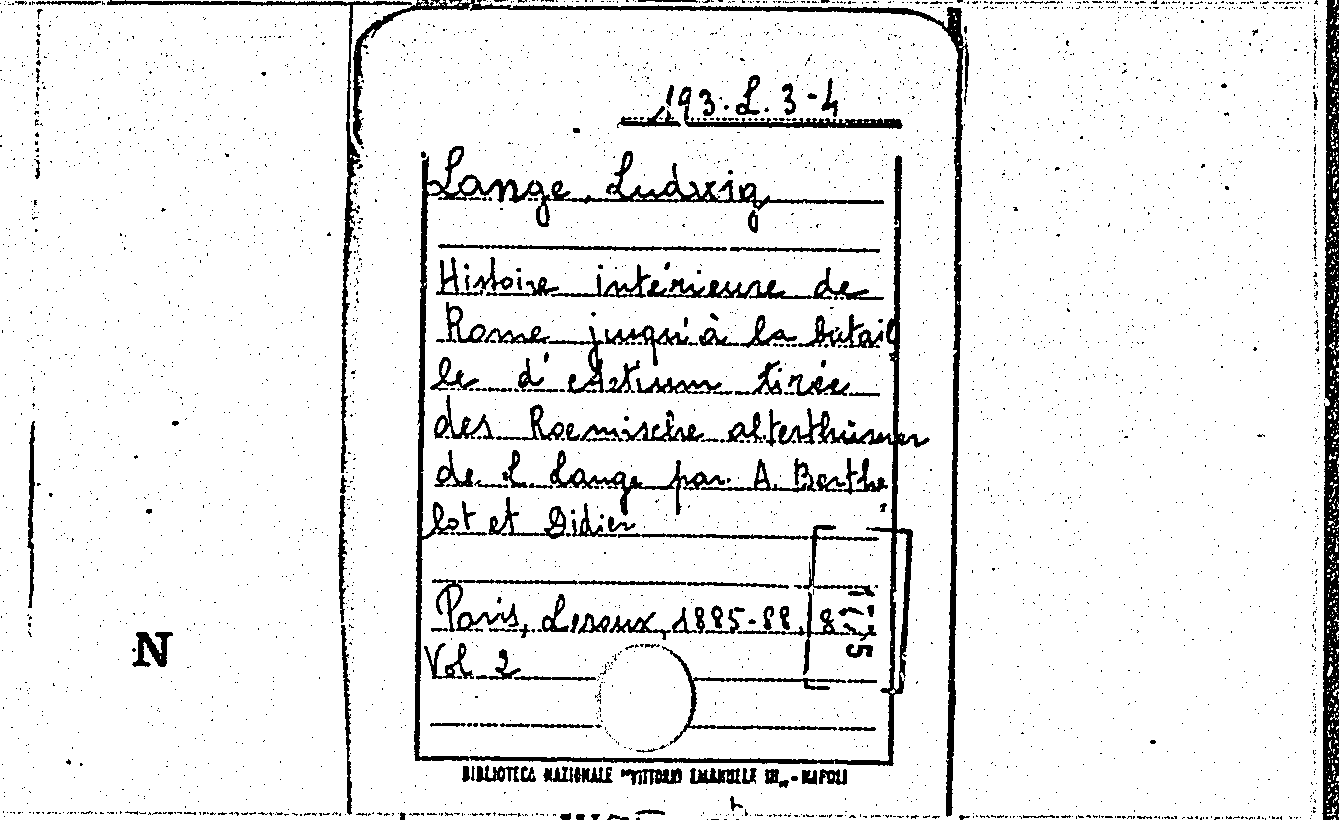 193.L.3-4
Lange, Ludwig
Histoire intérieure de
Rome jusqu'à la batail
le d'Actium tirée
des Roemische alterthümer
de L. Lange par A. Berthe
lot et Didier
Paris, Leroux, 1885-88, 8º
Vol. 2
175
N
BIBLIOTECA NAZIONALE "VITTORIO EMANUELE III" - NAPOLI